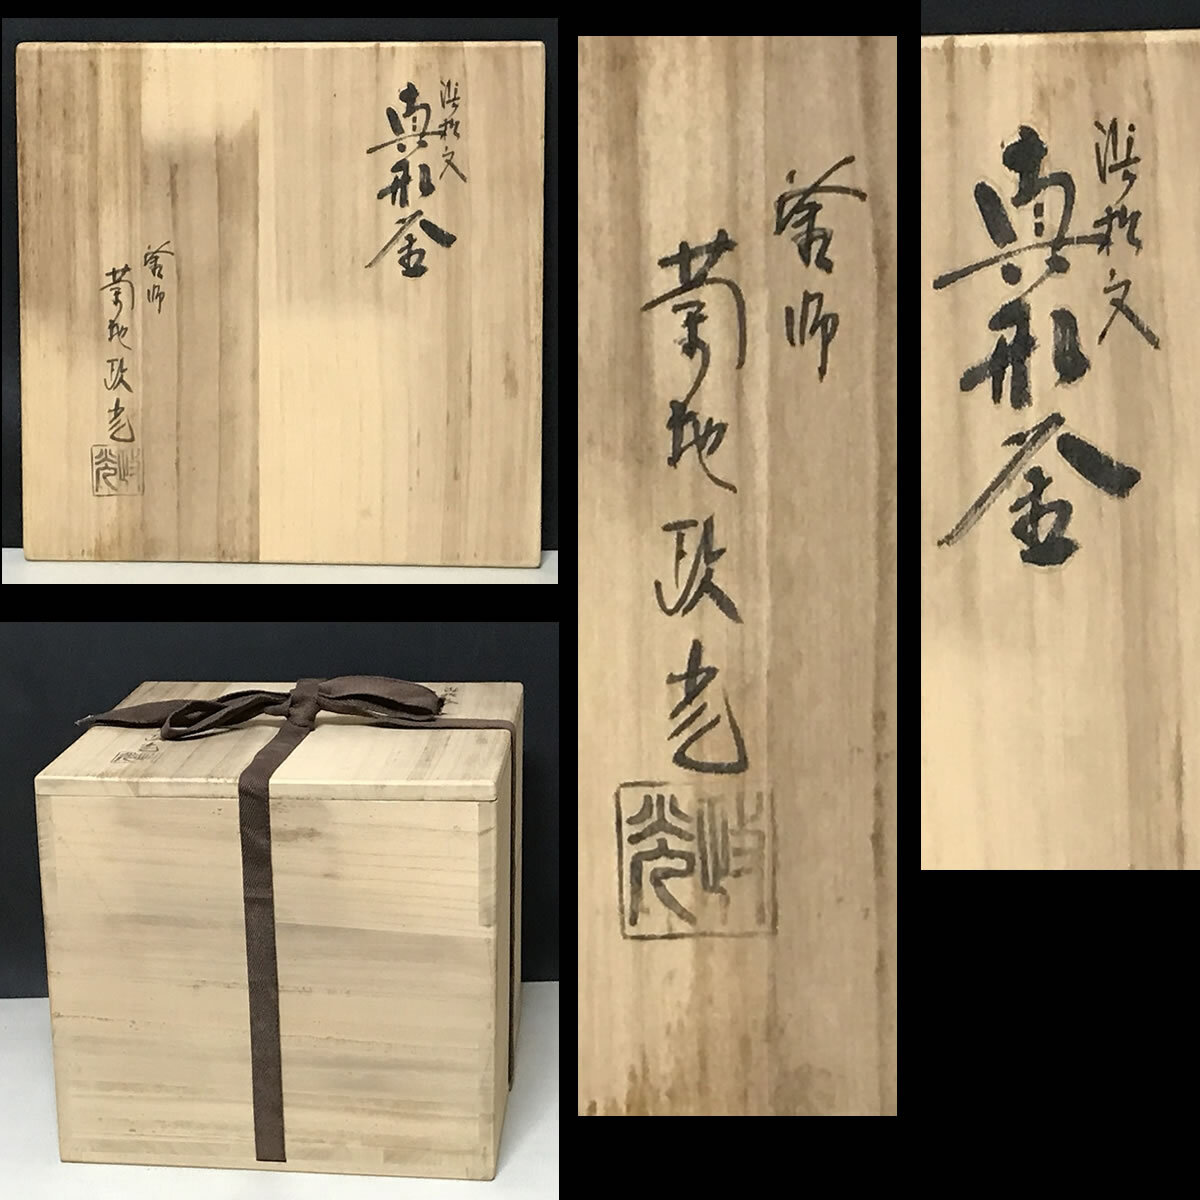 浜松文
真形釜
釜師
菊地政光
政光
浜松文
真形釜
釜師
菊地政光
政光